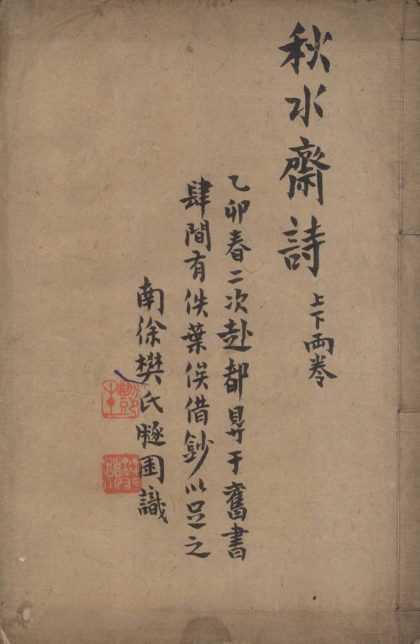 秋水齋詩
上下兩卷
乙卯春二次赴都見于舊書
肆間有佚葉俟借鈔以足之
南徐樊氏豚圃識